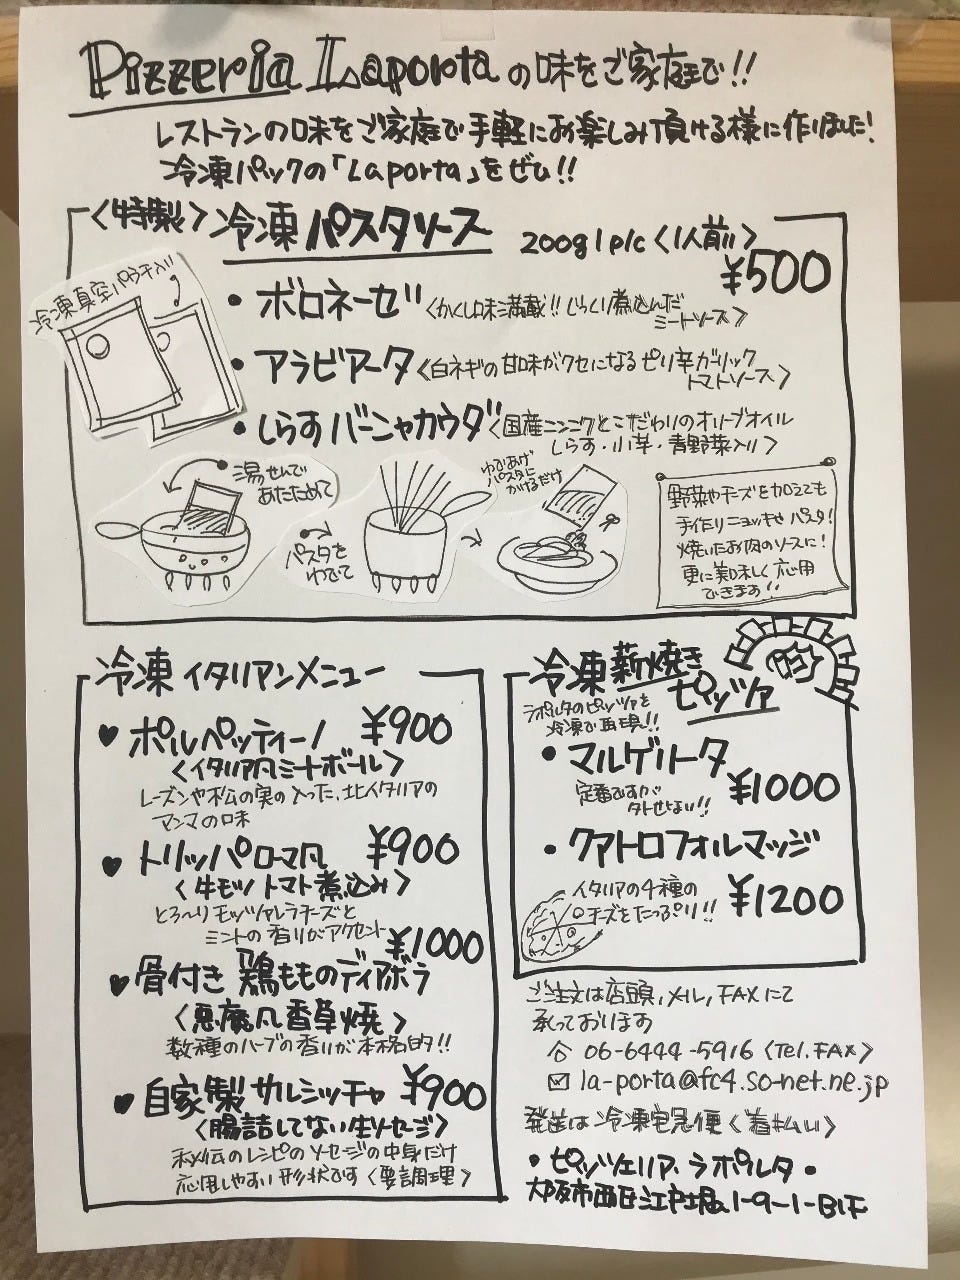 Pizzeria Laportaの味をご家庭で!!
レストランの味をご家庭で手軽にお楽しみ頂ける様に作りました!
冷凍パックの「Laporta」をぜひ!!
<特製>冷凍パスタソース 200g1p/c<1人前>
¥500
冷凍真空パック入り
・ボロネーゼ<かくし味満載!!じっくり煮込んだ
ミートソース>
・アラビアータ<白ネギの甘味がクセになるピリ辛ガーリック
トマトソース>
・しらすバーニャカウダ<国産ニンニクとこだわりのオリーブオイル
しらす・小芋・青野菜入り>
湯せんで
あたためて
パスタを
ゆでて
ゆであげ
パスタに
かけるだけ
野菜やチーズを加えても
手作りニョッキやパスタ!
焼いたお肉のソースに!
更に美味しく応用
できます!!
冷凍イタリアンメニュー
♥ポルペッティーノ ¥900
<イタリア凡ミートボール>
レーズンや松の実の入った、北イタリアの
マンマの味
♥トリッパローマ凡 ¥900
<牛モツトマト煮込み>
とろ〜りモッツァレラチーズと
ミントの香りがアクセント
¥1000
♥骨付き鶏もものディアボラ
<悪魔凡香草焼>
数種のハーブの香りが本格的!!
♥自家製サルシッチャ ¥900
<腸詰してない生ソーセージ>
秘伝のレシピのソーセージの中身だけ
応用しやすい形状です<要調理>
冷凍薪焼き
ピッツァ
ラポルタのピッツァを
冷凍で再現!!
・マルゲリータ
定番ですが
外せない!!
¥1000
・クアトロフォルマッジ
イタリアの4種の
チーズをたっぷり!!
¥1200
ご注文は店頭,メール,FAXにて
承っております
06-6444-5916<Tel.FAX>
✉la-porta@fc4.so-net.ne.jp
発送は冷凍宅急便<着払い>
・ピッツェリア・ラポルタ・
大阪市西区江戸堀1-9-1-B1F